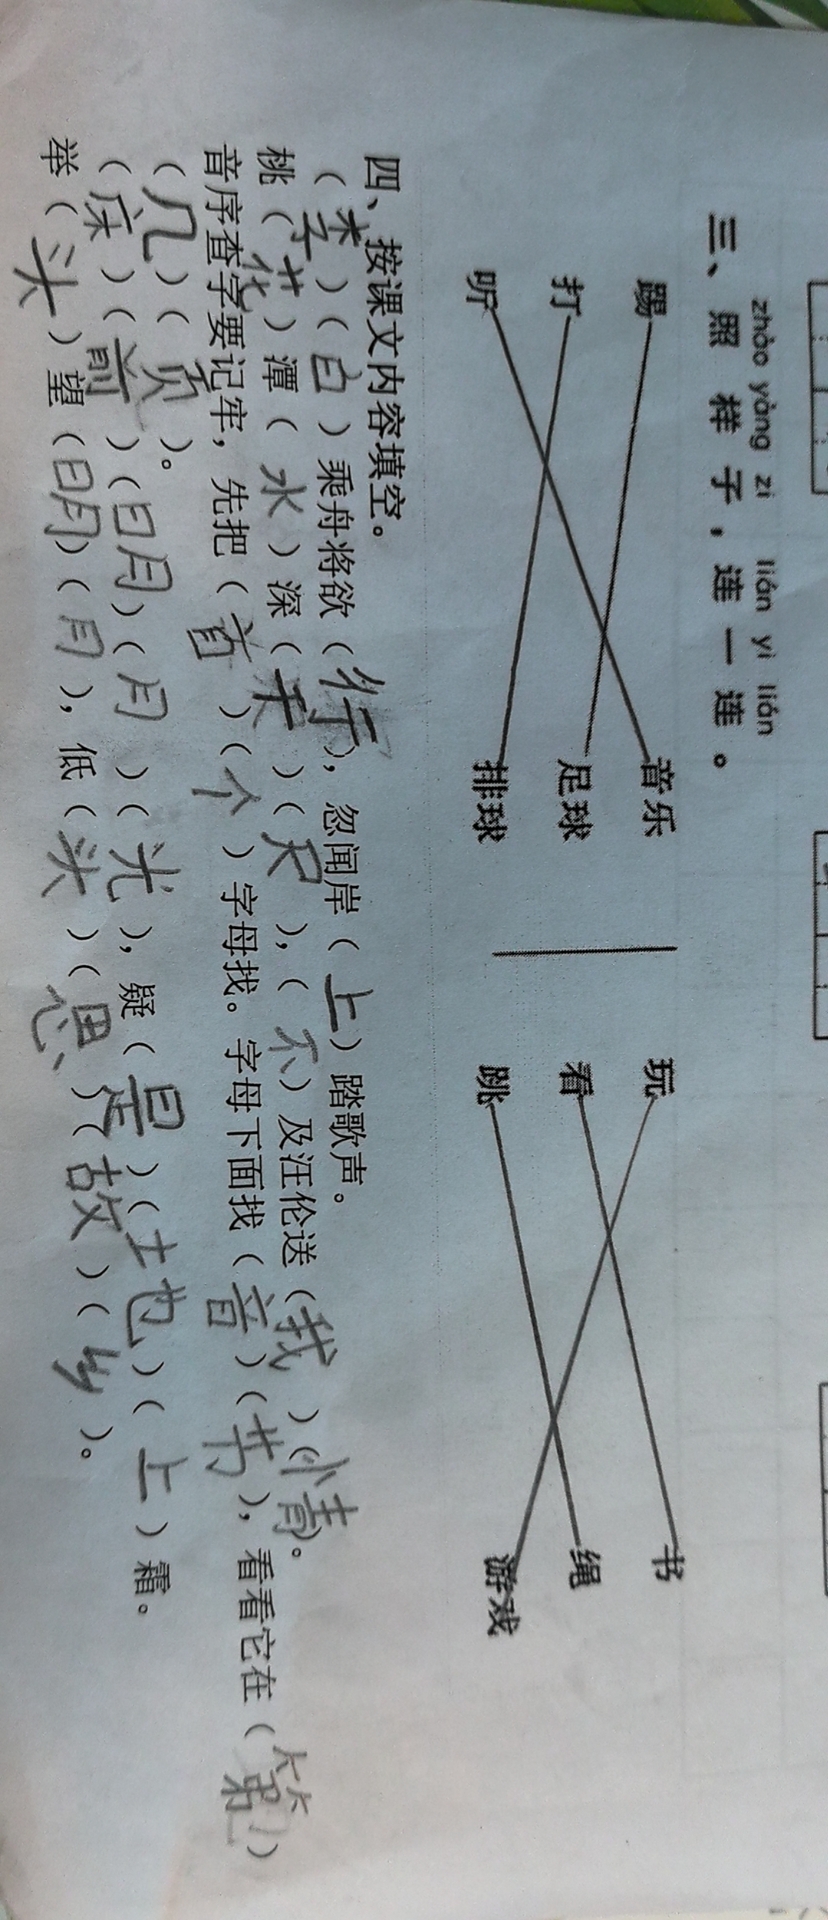 zhào yàng zi lián yi lián
三、照样子，连一连。
踢 音乐 玩 书
打 足球 看 绳
听 排球 跳 游戏
四、按课文内容填空。
（李）（白）乘舟将欲（行），忽闻岸（上）踏歌声。
桃（花）潭（水）深（千）（尺），（不）及汪伦送（我）（情）。
音序查字要记牢，先把（首）（个）字母找。字母下面找（音）（节），看看它在（第）
（几）（页）。
（床）（前）（明）（月）（光），疑（是）（地）（上）霜。
举（头）望（明）（月），低（头）（思）（故）（乡）。